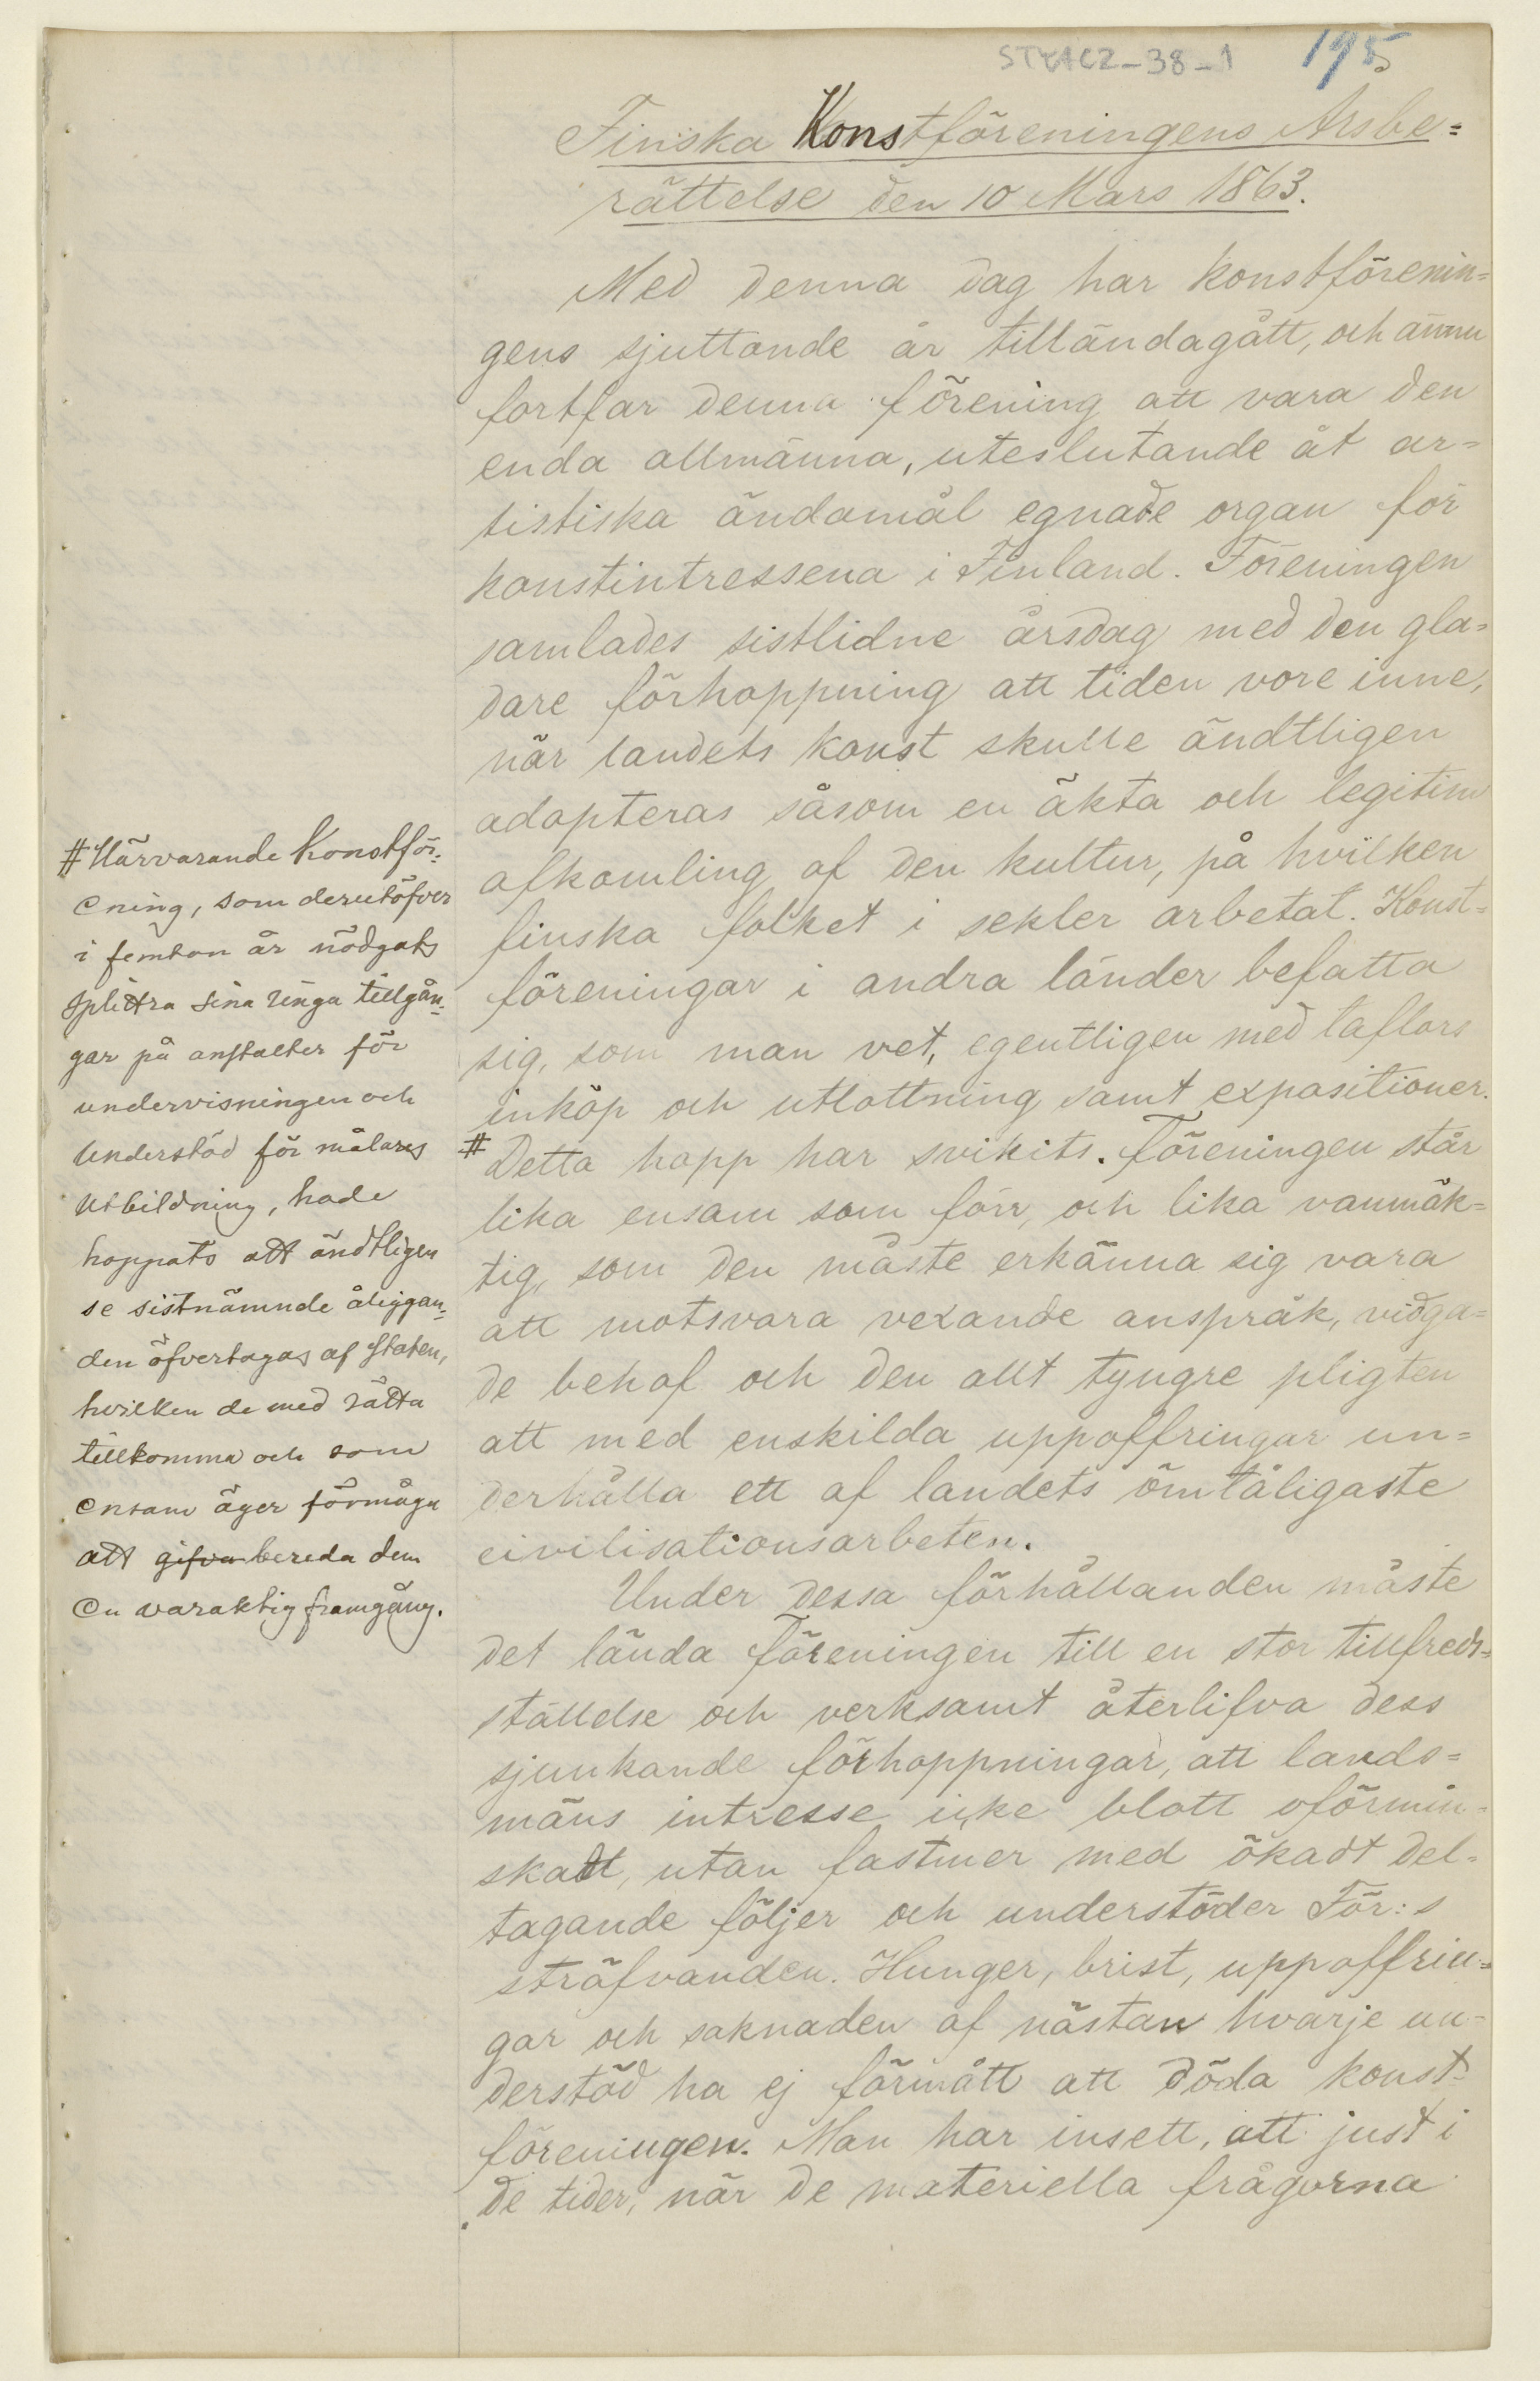 STYACZ-38-1 195
Finska Konstföreningens Årsbe=
rättelse den 10 Mars 1863.
Med denna dag har konstförenin=
gens sjuttonde år tilländagått, och ännu
fortfar denna förening att vara den
enda allmänna, uteslutande åt ar=
tistiska ändamål egnade organ för
konstintressena i Finland. Föreningen
samlades sistlidne årsdag med den gla=
dare förhoppning att tiden vore inne,
när landets konst skulle ändtligen
adopteras såsom en äkta och legitim
afkomling af den kultur, på hvilken
finska folket i sekler arbetat. Konst=
föreningar i andra länder befatta
sig, som man vet, egentligen med taflors
inköp och utlottning samt expositioner.
# Detta hopp har svikits. Föreningen står
lika ensam som förr, och lika vanmäk=
tig, som den måste erkänna sig vara
att motsvara vexande anspråk, vidga=
de behof och den allt tyngre pligten
att med enskilda uppoffringar un=
derhålla ett af landets ömtåligaste
civilisationsarbeten.
Under dessa förhållanden måste
det lända Föreningen till en stor tillfreds=
ställelse och verksamt återlifva dess
sjunkande förhoppningar, att lands=
mäns intresse icke blott oförmin=
skadt, utan fastmer med ökadt del=
tagande följer och understöder För:s
sträfvanden. Hunger, brist, uppoffrin=
gar och saknaden af nästan hvarje un=
derstöd ha ej förmått att döda konst=
föreningen. Man har insett, att just i
de tider, när de materiella frågorna
# Härvarande Konstför=
ening, som derutöfver
i femton år nödgats
splittra sina ringa tillgån=
gar på anstalter för
undervisningen och
understöd för målares
utbildning, hade
hoppats att ändtligen
se sistnämnde åliggan=
den öfvertagas af Staten,
hvilken de med rätta
tillkomma och som
ensam äger förmåga
att gifva bereda dem
en varaktig framgång.